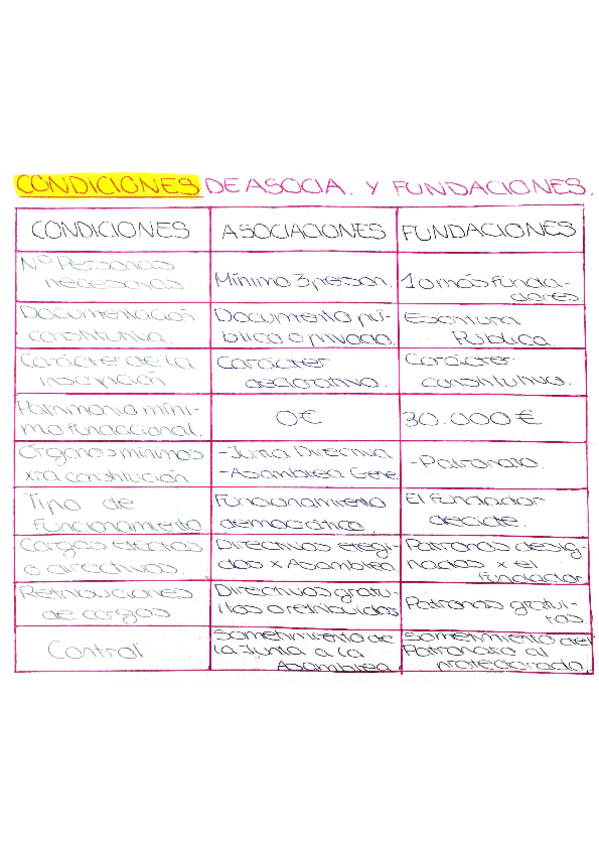 CONDICIONES DE ASOCIA. Y FUNDACIONES.
CONDICIONES ASOCIACIONES FUNDACIONES
Nº Personas
necesarias
Mínimo 3 person.
1 o más funda-
dores
Documentación
constitutiva.
Documento pú-
blico o privado.
Escritura
Pública.
Carácter de la
inscripción
Carácter
declarativo.
Carácter
constitutivo.
Patrimonio míni-
mo funaccional.
0€
30.000€
Órganos mínimos
xra constitución
-Junta Directiva
-Asamblea Gene.
-Patronato.
Tipo de
Funcionamiento.
Funcionamiento
democrático.
El fundador
decide.
Cargos electos
o directivos.
Directivos elegi-
dos x Asamblea
Patronos desig-
nados x el
fundador
Retribuciones
de cargos
Directivos gratu-
itos o retribuidos
Patronos gratui-
tos.
Control
Sometimiento de
la Junta a la
Asamblea.
Sometimiento del
Patronato al
protectorado.